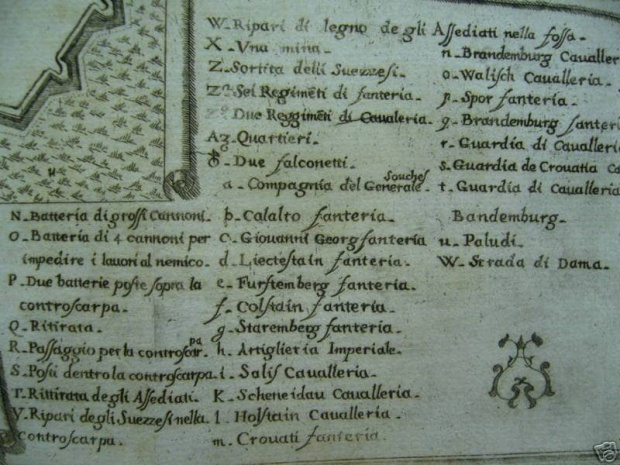 N - Batteria di grossi Cannoni.
O - Batteria di 4 cannoni per
impedire i lauori al nemico.
P - Due batterie poste sopra la
controscarpa.
Q - Ritirata.
R - Passaggio per la controscarpa.
S - Posti dentro la controscarpa.
T - Rittirata degli Assediati.
V - Ripari degli Suezzesi nella
controscarpa.
W - Ripari di legno degli Assediati nella fossa.
X - Vna mina.
Z - Sortita delli Suezzesi.
Sei Regimēti di fanteria.
Due Reggimēti di Caualeria.
Quartieri.
Due falconetti.
a - Compagnia del Generale Souches
b - Calalto fanteria.
c - Giouanni Georg fanteria
d - Liectestain fanteria.
e - Furstemberg fanteria.
f - Colstain fanteria.
g - Staremberg fanteria.
h - Artiglieria Imperiale.
i - Salis Caualleria.
K - Scheneidau Caualleria.
l - Holstain Caualleria
m - Crouati fanteria.
n - Brandemburg Caualleri
o - Walisch Caualleria.
p - Spor fanteria.
q - Brandemburg fanteri
r - Guardia di Caualleri
s - Guardia de Crouatia Ca
t - Guardia di Caualleria
Bandemburg.
u - Paludi.
W - Strada di Dama.
H